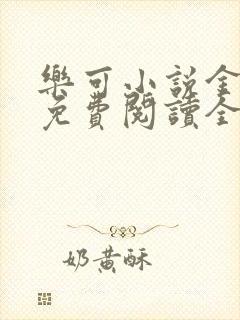 樂可小說全
免費閱讀全
奶黃酥